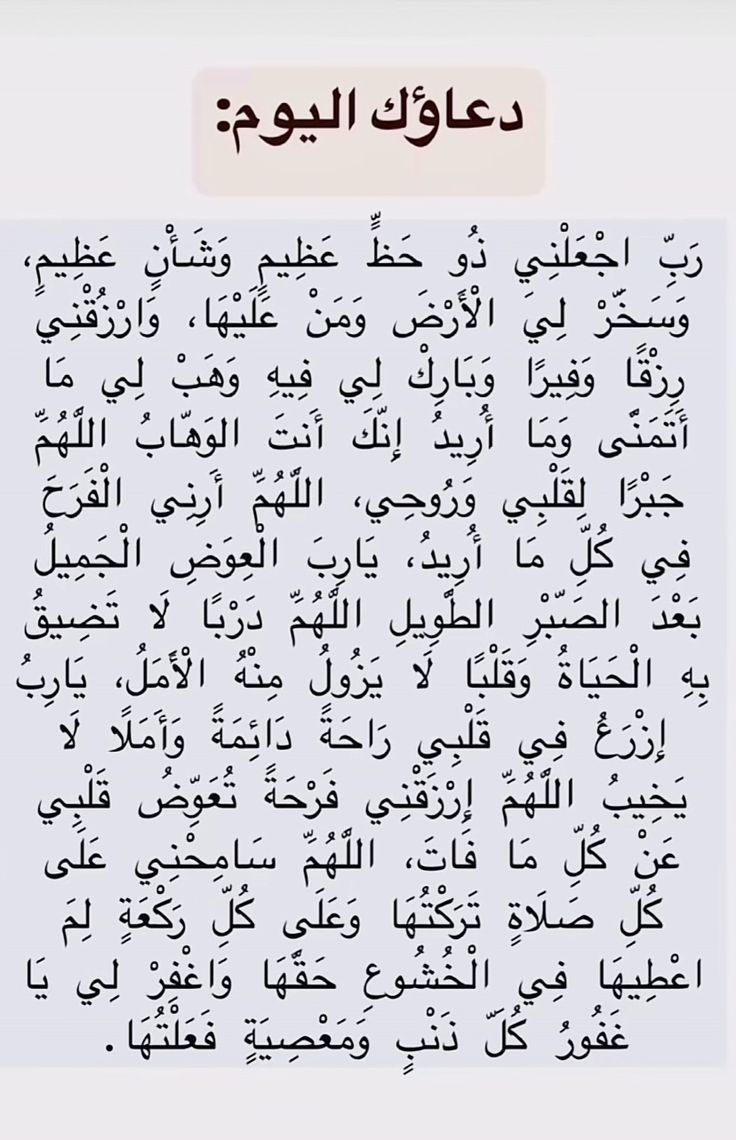 دعاؤك اليوم:
رَبِّ اجْعَلْنِي ذُو حَظٍّ عَظِيمٍ وَشَأْنٍ عَظِيمٍ،
وَسَخِّرْ لِيَ الْأَرْضَ وَمَنْ عَلَيْهَا، وَارْزُقْنِي
رِزْقًا وَفِيرًا وَبَارِكْ لِي فِيهِ وَهَبْ لِي مَا
أَتَمَنَّى وَمَا أُرِيدُ إِنَّكَ أَنتَ الوَهَّابُ اللَّهُمِّ
جَبْرًا لِقَلْبِي وَرُوحِي، اللَّهُمِّ أَرِنِي الْفَرَحَ
فِي كُلِّ مَا أُرِيدُ، يَارِبَ الْعِوَضِ الْجَمِيلُ
بَعْدَ الصَّبْرِ الطَّوِيلِ اللَّهُمِّ دَرْبًا لَا تَضِيقُ
بِهِ الْحَيَاةُ وَقَلْبًا لَا يَزُولُ مِنْهُ الْأَمَلُ، يَارِبُ
إِزْرَعُ فِي قَلْبِي رَاحَةً دَائِمَةً وَأَمَلًا لَا
يَخِيبُ اللَّهُمِّ إِرْزَقْنِي فَرْحَةً تُعَوِّضُ قَلْبِي
عَنْ كُلِّ مَا فَاتَ، اللَّهُمِّ سَامِحْنِي عَلَى
كُلِّ صَلَاةٍ تَرَكْتُهَا وَعَلَى كُلِّ رَكْعَةٍ لِمَ
اعْطِيهَا فِي الْخُشُوعِ حَقَّهَا وَاغْفِرْ لِي يَا
غَفُورُ كُلَّ ذَنْبٍ وَمَعْصِيَةٍ فَعَلْتُهَا.